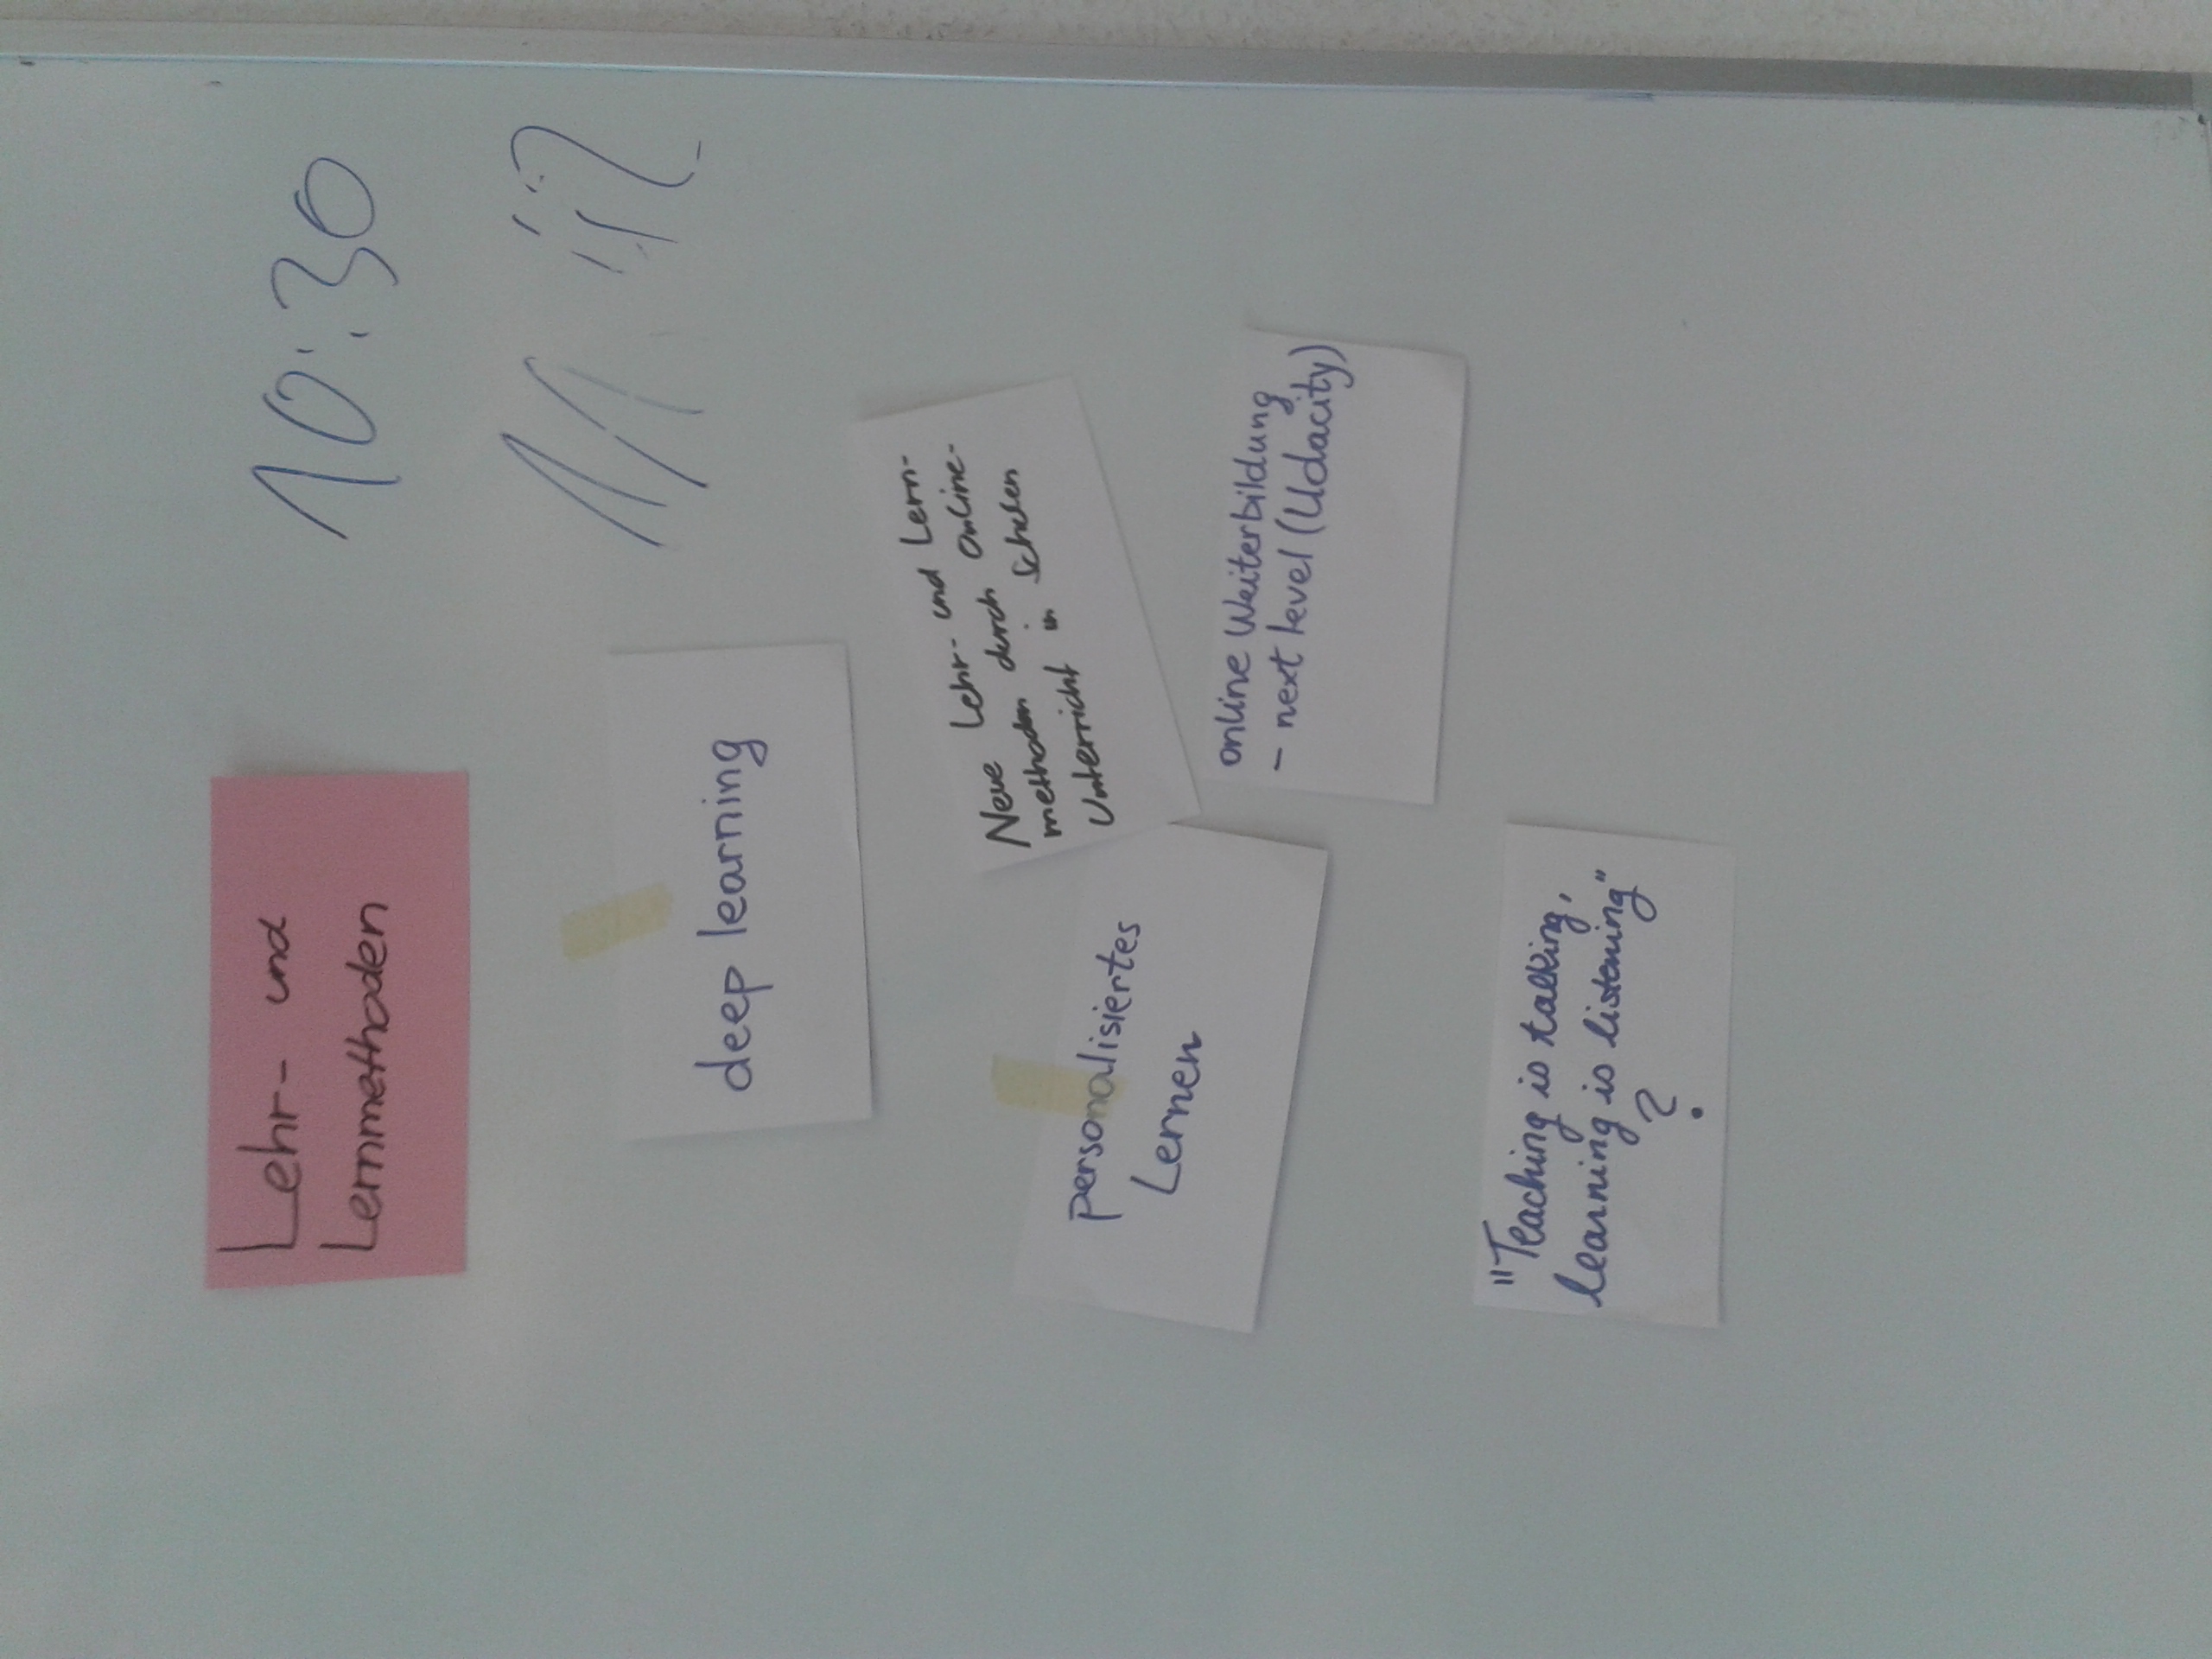 Lehr- und
Lernmethoden
10:30
deep learning
Neue Lehr- und Lern-
methoden durch Online-
Unterricht in Schulen
personalisiertes
Lernen
online Weiterbildung
- next level (Udacity)
"Teaching is talking,
learning is listening"
?